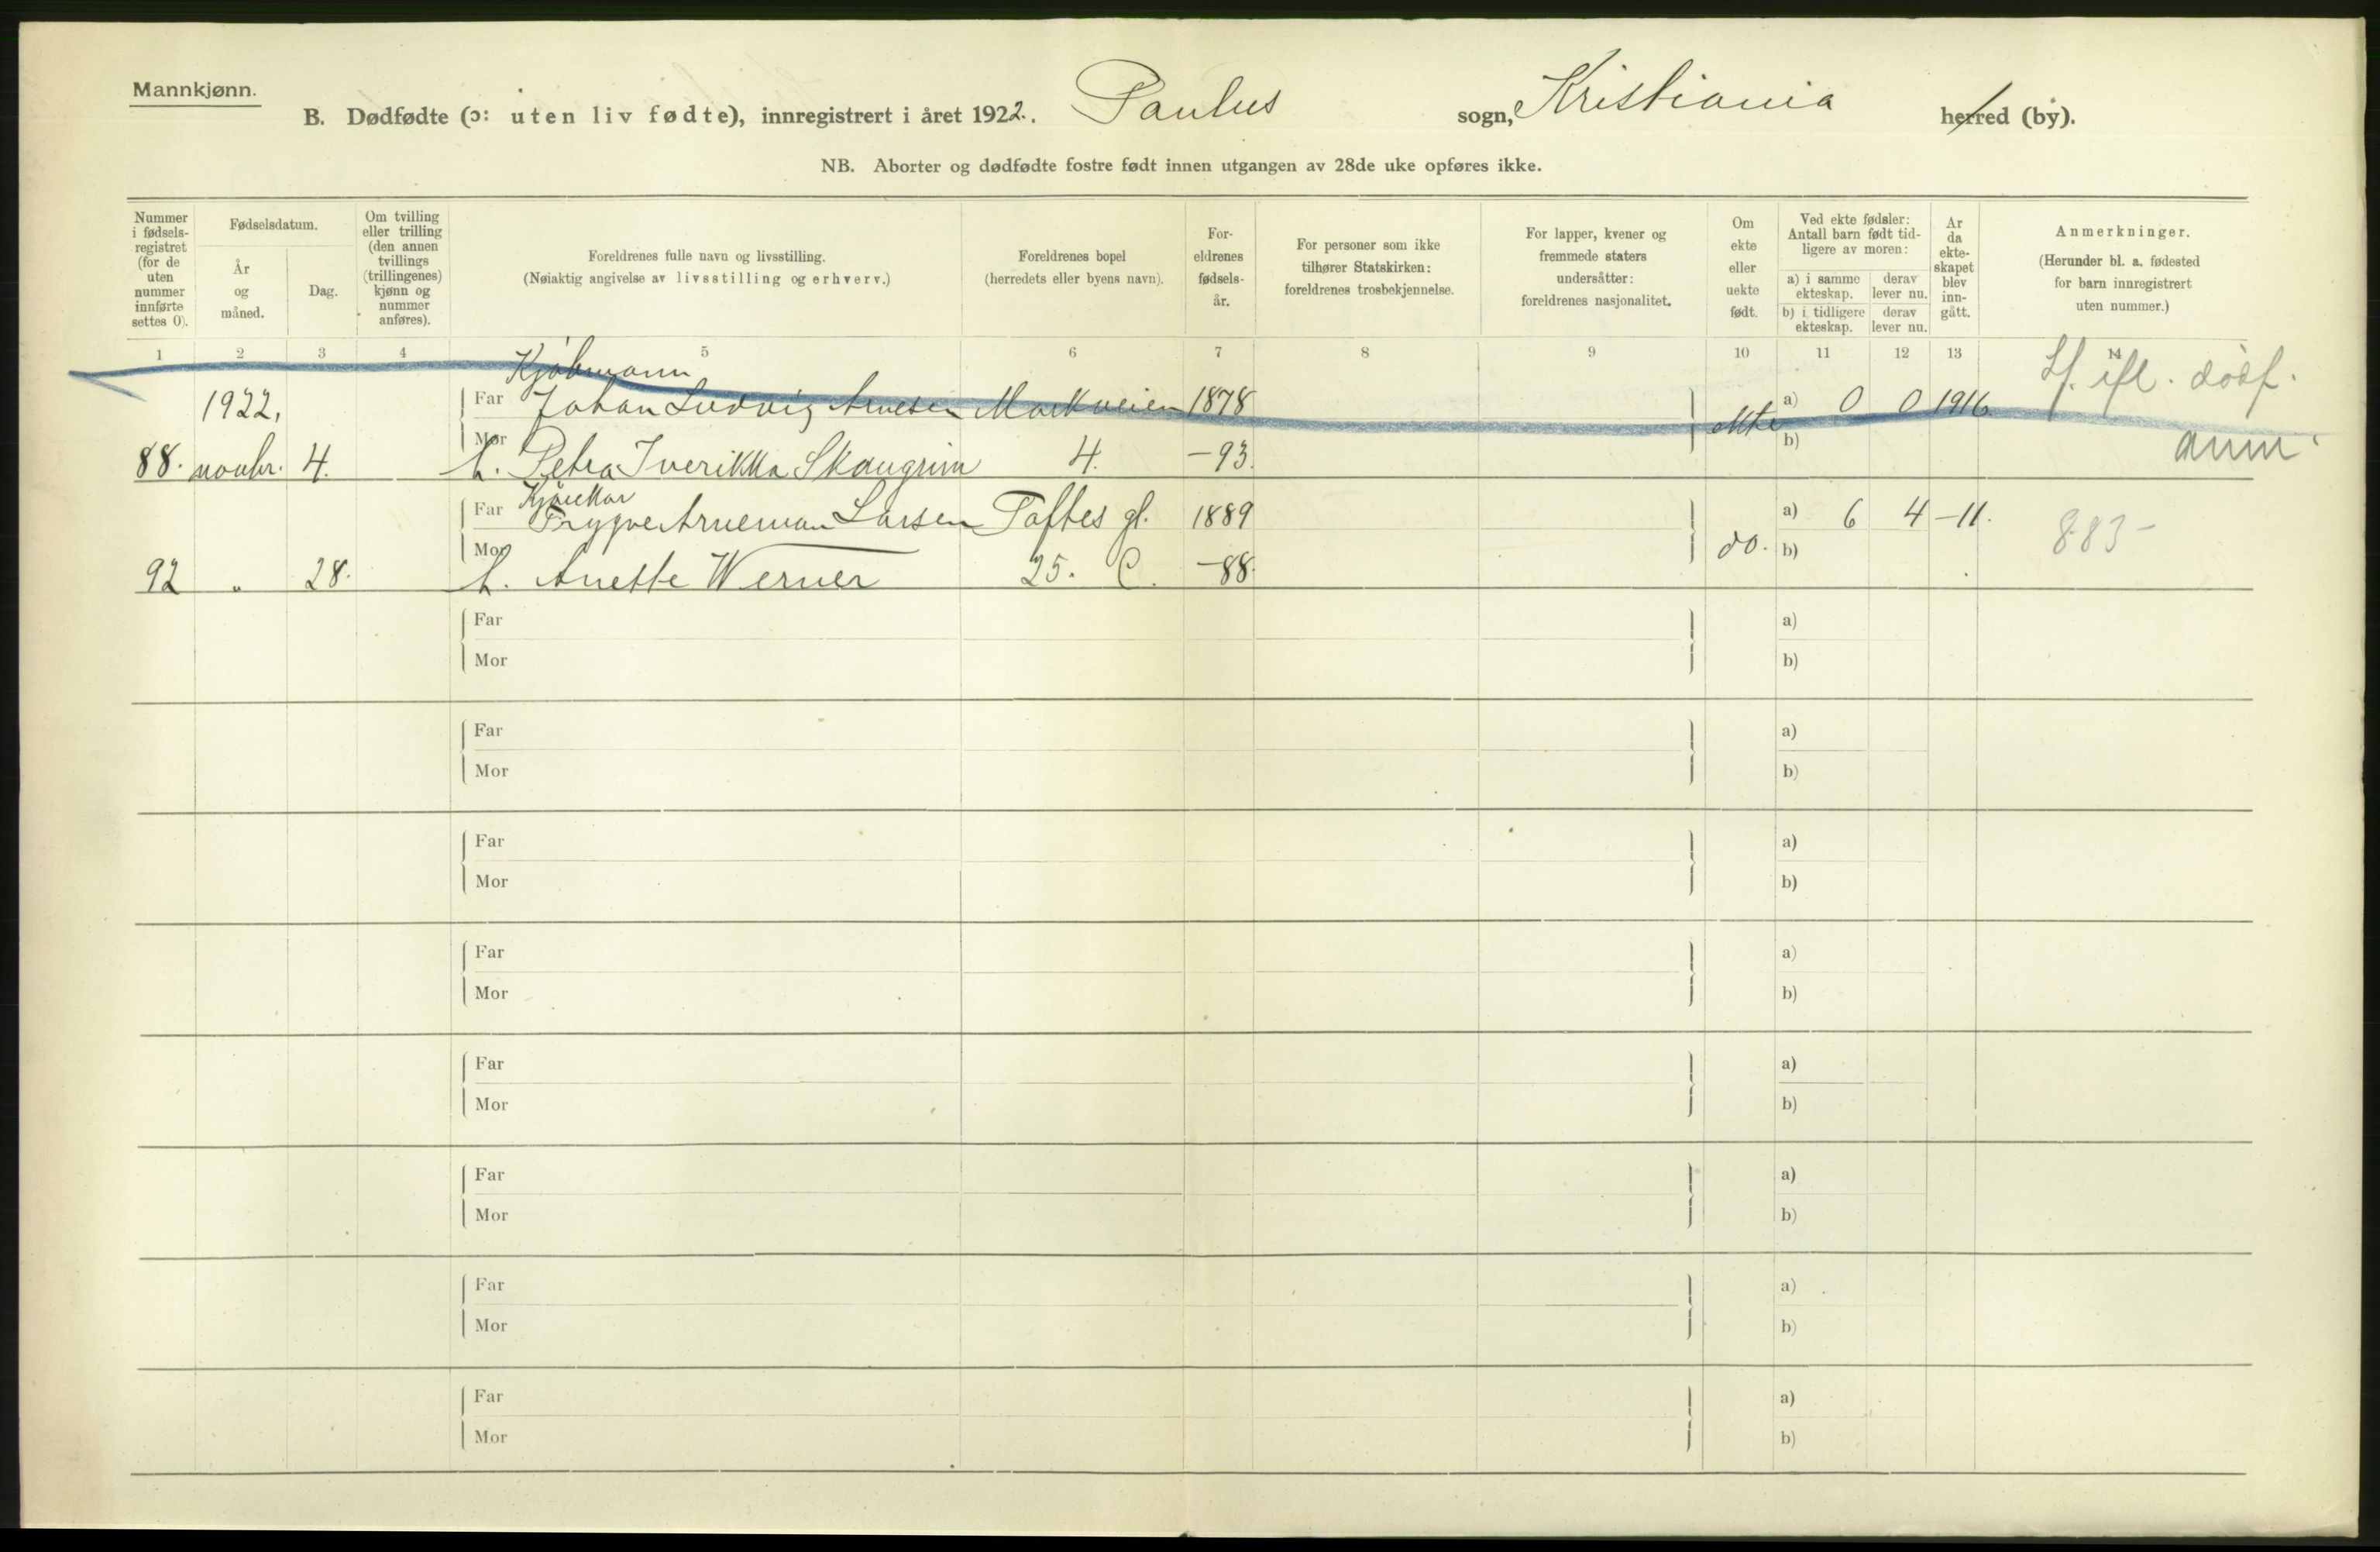 Mannkjønn.
B. Dødfødte (ɔ: uten liv fødte), innregistrert i året 1922. Paulus sogn, Kristiania herred (by).
NB. Aborter og dødfødte fostre født innen utgangen av 28de uke opføres ikke.
Nummer i fødsels-registret (for de uten nummer innførte settes 0).
Fødselsdatum.
År og måned.
Dag.
Om tvilling eller trilling (den annen tvillings (trillingenes) kjønn og nummer anføres).
Foreldrenes fulle navn og livsstilling.
(Nøiaktig angivelse av livsstilling og erhverv.)
Foreldrenes bopel
(herredets eller byens navn).
For-eldrenes fødsels-år.
For personer som ikke tilhører Statskirken: foreldrenes trosbekjennelse.
For lapper, kvener og fremmede staters undersåtter: foreldrenes nasjonalitet.
Om ekte eller uekte født.
Ved ekte fødsler: Antall barn født tid-ligere av moren:
a) i samme ekteskap.
derav lever nu.
b) i tidligere ekteskap.
derav lever nu.
År da ekte-skapet blev inn-gått.
Anmerkninger.
(Herunder bl. a. fødested for barn innregistrert uten nummer.)
1 2 3 4 5 6 7 8 9 10 11 12 13 14
Kjøbmann
1922, Far Johan Ludvig Arnesen Markveien 1878 ekte a) 0 0 1916 ifl. dødf.
88. novbr. 4. Mor h. Petra Skaugrim 4. -93. b) anm.
Far Trygve Larsen Toftes gt. 1889 do. a) 6 4 -11. 883-
92 " 28. Mor h. Anette Werner 25. C. -88. b)
Far a)
Mor b)
Far a)
Mor b)
Far a)
Mor b)
Far a)
Mor b)
Far a)
Mor b)
Far a)
Mor b)
Far a)
Mor b)
Far a)
Mor b)